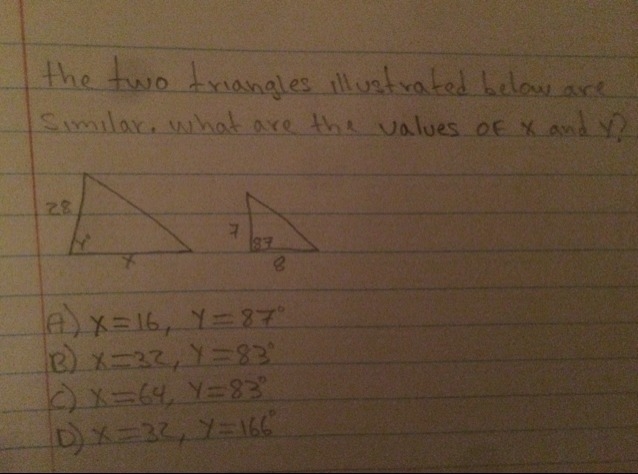 the two triangles illustrated below are
Similar. what are the values of x and y?
28
y
x
7
87
8
A) x=16, y=87°
B) x=32, y=83°
C) x=64, y=83°
D) x=32, y=166°